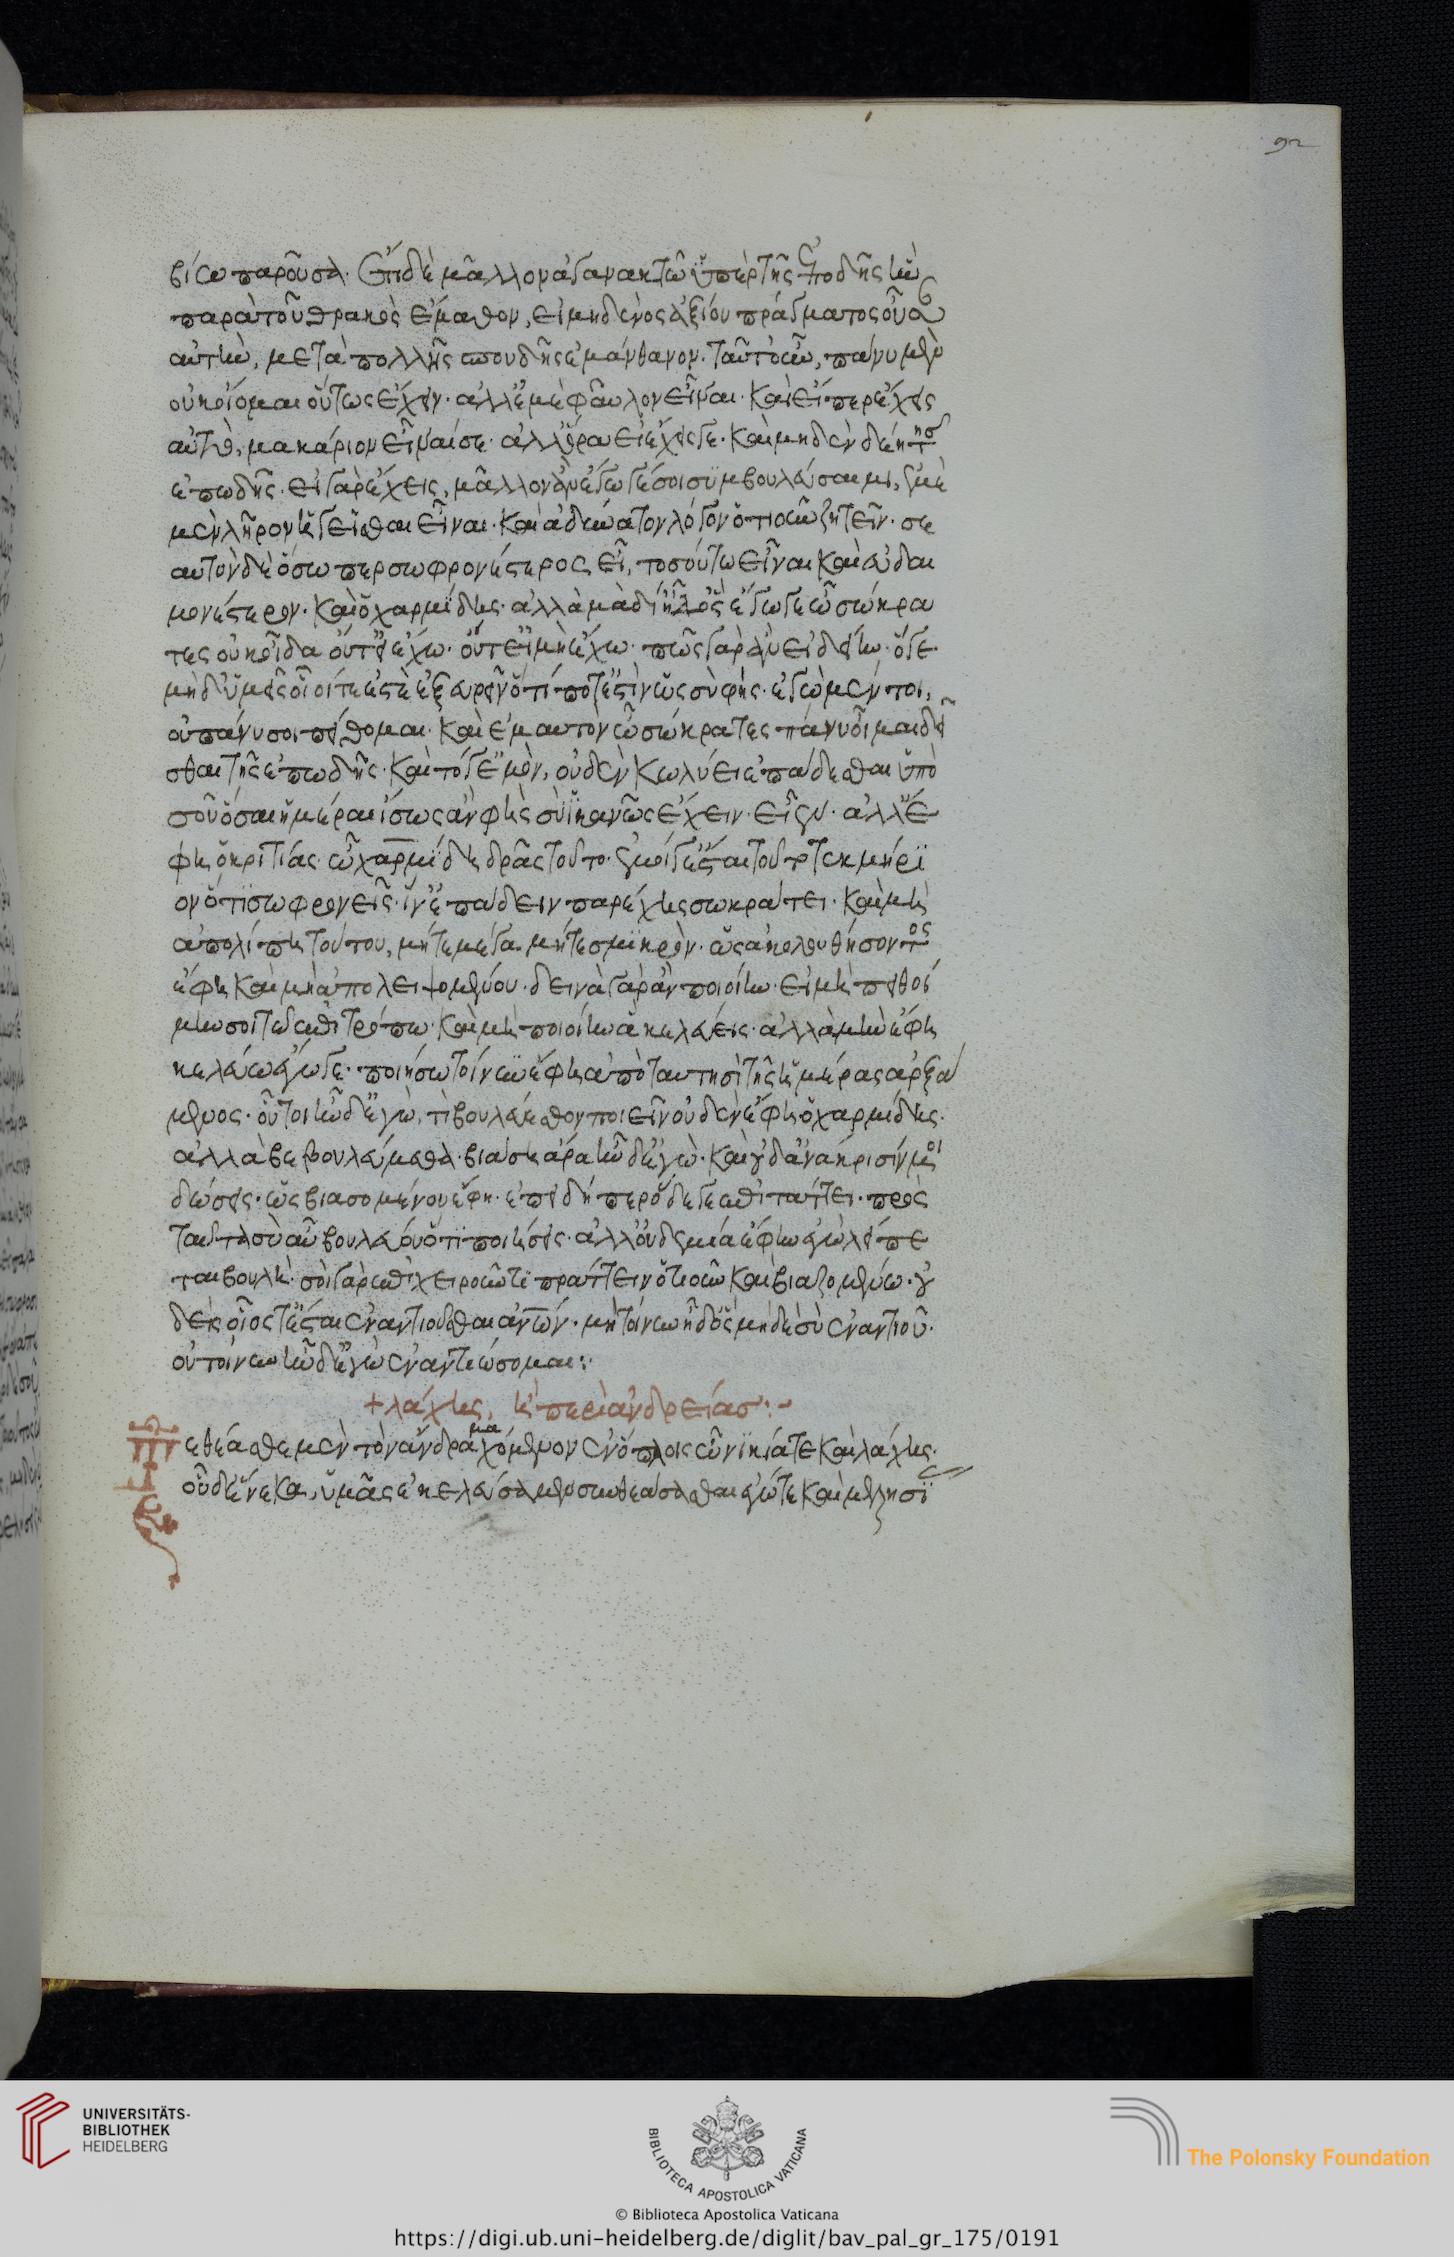 βίῳ παροῦσα. ἔτι δὲ μᾶλλον ἀγανακτῶ ὑπὲρ τῆς ἐποδῆς ἣν
παρὰ τοῦ θρακὸς ἔμαθον, εἰ μηδενὸς ἀξίου πράγματος οὖσαν
αὐτὴν, μετὰ πολλῆς σπουδῆς ἐμάνθανον. ταῦτ' οὖν, πάνυ μὲν
οὐκ οἴομαι οὕτως ἔχειν· ἀλλ' ἐμὲ φαῦλον εἶναι· καὶ εἴπερ ἔχεις
αὐτὸ, μακάριον εἶναί σε· ἀλλ' ὅρα εἰ ἔχεις γε· καὶ μηδὲν δέη τῆσ
ἐπωδῆς. εἰ γὰρ ἔχεις, μᾶλλον ἂν ἔγωγέ σοι συμβουλεύσαιμι, ἐμὲ
μὲν λῆρον ἡγεῖσθαι εἶναι· καὶ ἀδύνατον λόγον ὁτιοῦν ζητεῖν. σε
αυτὸν δὲ ὅσω περ σωφρονέστερος εἶ, τοσούτω εἶναι καὶ εὐδαι
μονέστερον. καὶ ὁ χαρμίδης· ἀλλὰ μὰ δί' ἦ δ' ὃς ἔγωγε ὦ σώκρα
τες οὐκ οἶδα οὔτ' εἰ ἔχω· οὔτ' εἰ μὴ ἔχω· πῶς γὰρ ἂν εἰδείην· ὅ γε
μηδ' ὑμεῖς οἷοί τε ἐστὲ ἐξευρεῖν ὅτί ποτ' ἔστὶν ὡς σὺ φής· ἐγὼ μέν τοι,
οὐ πάνυ σοι πείθομαι· καὶ ἐμαυτὸν ὦ σώκρατες πάνυ οἶμαι δεῖ
σθαι τῆς ἐπωδῆς· καὶ τό γ' ἐμὸν, οὐδὲν κωλύει ἐπάδεσθαι ὑπὸ
σοῦ ὅσαι ἡμέραι ἴσως ἀν φῆς σὺ ἱκανῶς ἔχειν. εἶεν· ἀλλ' ἔ
φη ὁ κριτίας· ὦ χαρμίδη δρᾶς τοῦτο· ἐμοί γ' ἔσται τοῦτο τεκμήρι
ον ὅτι σωφρονεῖς· ἢν ἐπάδειν παρέχης σωκράτει· καὶ μὴ
ἀπολίπη τούτου, μήτε μέγα μήτε σμικρὸν· ὡς ἀκολουθήσοντος
ἔφη καὶ μὴ ἀπολειψομένου. δεινὰ γὰρ ἂν ποιοίην· εἰ μὴ πειθοί
μην σοὶ τῶ ἐπιτρόπω· καὶ μὴ ποιοίην ἃ κελεύεις. ἀλλὰ μὴν ἔφη
κελεύω ἔγωγε. ποιήσω τοίνυν ἔφη ἀπὸ ταυτησὶ τῆς ἡμέρας ἀρξά
μενος· οὗτοι ἦν δ' ἐγὼ, τὶ βουλεύεσθον ποιεῖν οὐδὲν ἔφη ὁ χαρμίδης.
ἀλλὰ βεβουλεύμεθα. βιάση ἄρα ἦν δ' ἐγὼ· καὶ οὐδ' ἀνάκρισίν μοι
δώσεις· ὡς βιασομένου ἔφη· ἐπειδή περ ὅδε γε ἐπιτάττει. πρὸς
ταῦτα σὺ αὖ βουλεύου ὅτι ποιήσεις· ἀλλ' οὐδεμία ἔφην ἐγὼ λείπε
ται βουλή. σοὶ γὰρ ἐπιχειροῦντι πράττειν ὁτιοῦν καὶ βιαζομένω· οὐ
δεὶς οἷός τ' ἔσται ἐναντιοῦσθαι ἀν̅ων̅. μὴ τοίνυν ἦ δ' ὃς μὴ δὲ σὺ ἐναντιοῦ.
οὐ τοίνυν ἦν δ' ἐγὼ ἐναντιώσομαι:
+ λάχης, ἢ περὶ ἀνδρείασ:-
τεθέασθε μὲν τὸν ἄνδρα μαχόμενον ἐν ὅπλοις ὦ νικία τε καὶ λάχης.
οὗ δ' ἕνεκα, ὑμᾶς ἐκελεύσαμεν συνθεάσασθαι ἐγώ τε καὶ μελησί
UNIVERSITÄTS-
BIBLIOTHEK
HEIDELBERG
BIBLIOTECA APOSTOLICA VATICANA
The Polonsky Foundation
© Biblioteca Apostolica Vaticana
https://digi.ub.uni-heidelberg.de/diglit/bav_pal_gr_175/0191